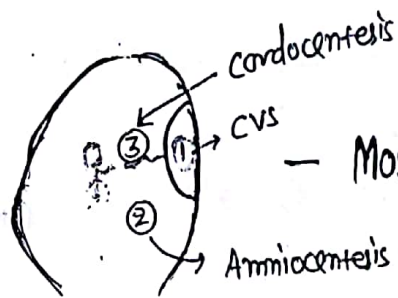 Cordocentesis
③ ① CVS
— Mo
②
Amniocentesis